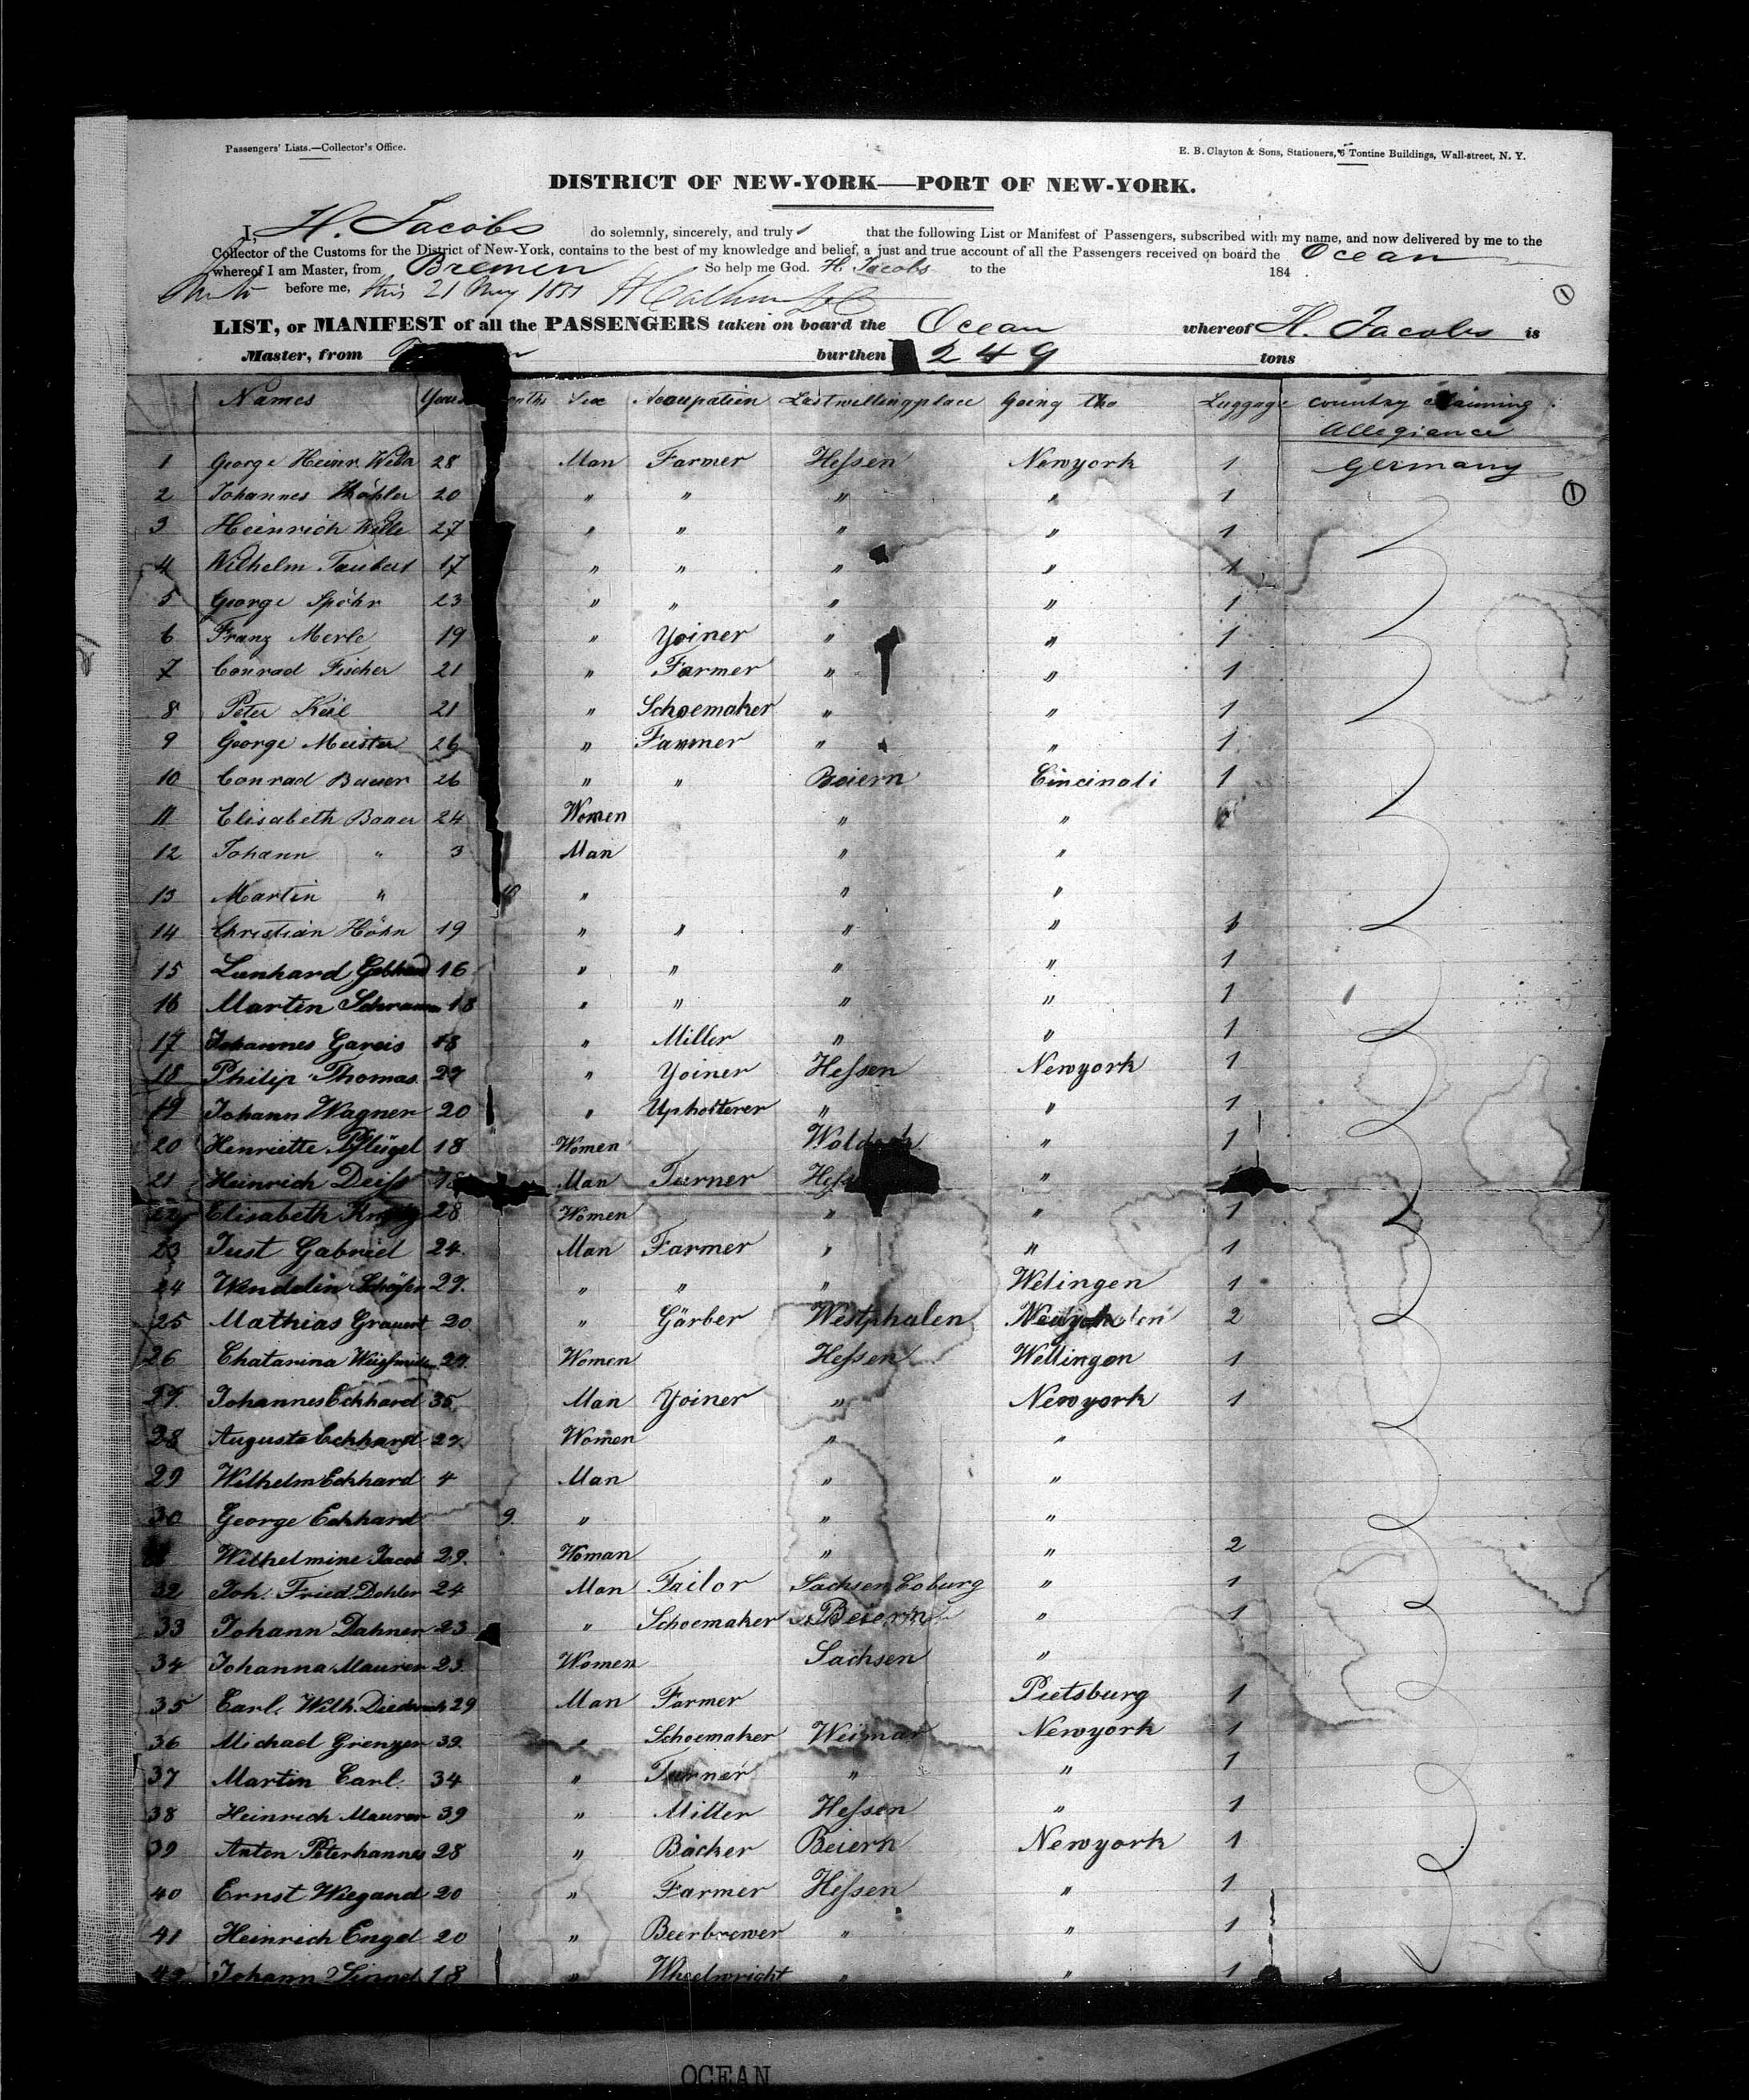 Passengers' Lists.—Collector's Office.
E. B. Clayton & Sons, Stationers, Tontine Buildings, Wall-street, N. Y.
DISTRICT OF NEW-YORK—PORT OF NEW-YORK.
I, H. Jacobs do solemnly, sincerely, and truly that the following List or Manifest of Passengers, subscribed with my name, and now delivered by me to the
Collector of the Customs for the District of New-York, contains to the best of my knowledge and belief, a just and true account of all the Passengers received on board the Ocean
whereof I am Master, from Bremen So help me God. H. Jacobs to the 184 .
before me, this 21 May
1
LIST, or MANIFEST of all the PASSENGERS taken on board the Ocean whereof H. Jacobs is
Master, from burthen 249 tons
Names Sex Accupation Lastwillingplace Going tho Luggage country claiming
Allegiance
1 George Heinr. 28 Man Farmer Hessen Newyork 1 Germany
2 Johannes Köhler 20 " " " " 1 1
3 Heinrich 27 " " " " 1
4 Wilhelm Taubert 17 " " " " 1
5 George Spöhr 23 " " " " 1
6 Franz Merle 19 " Yoiner " " 1
7 Conrad Fischer 21 " Farmer " " 1
8 Peter Keil 21 " Schoemaker " " 1
9 George Meister 26 " Farmer " " 1
10 Conrad Bauer 26 " " Beiern Cincinati 1
11 Elisabeth Bauer 24 Women " "
12 Johann " 3 Man " "
13 Martin " " " "
14 Christian Höhn 19 " " " " 1
15 Lenhard 16 " " " " 1
16 Martin Schramm 18 " " " " 1
17 Johannes Gareis 18 " Miller " " 1
18 Philip Thomas 29 " Yoiner Hessen Newyork 1
19 Johann Wagner 20 " Upholterer " " 1
20 Henriette Pflügel 18 Women " 1
21 Heinrich Deiss Man Turner "
22 Elisabeth 28 Women " " 1
23 Just Gabriel 24 Man Farmer " " 1
24 Wendelin Schäfer 29 " " " Welingen 1
25 Mathias Grauert 20 " Gärber Westphalen 2
26 Chatarina 29 Women Hessen Wellingen 1
27 Johannes Eckhard 35 Man Yoiner " Newyork 1
28 Auguste Eckhard 29 Women " "
29 Wilhelm Eckhard 4 Man " "
30 George Eckhard 9 " " "
Wilhelmine Jacob 29 Woman " " 2
32 Joh. Fried. Dohler 24 Man Tailor Sachsen Coburg " 1
33 Johann Dahner 23 " Schoemaker Beiern " 1
34 Johanna Maurer 23 Women Sachsen "
35 Carl. Wilh. Diederich 29 Man Farmer Pietsburg 1
36 Michael Grenzer 39 " Schoemaker Weimar Newyork 1
37 Martin Carl 34 " Turner " " 1
38 Heinrich Maurer 39 " Miller Hessen " 1
39 Anton Peterhannes 28 " Bäcker Beiern Newyork 1
40 Ernst Wiegand 20 " Farmer Hessen " 1
41 Heinrich Engel 20 " Beerbrewer " " 1
42 Johann 18 " Wheelwright " " 1
OCEAN